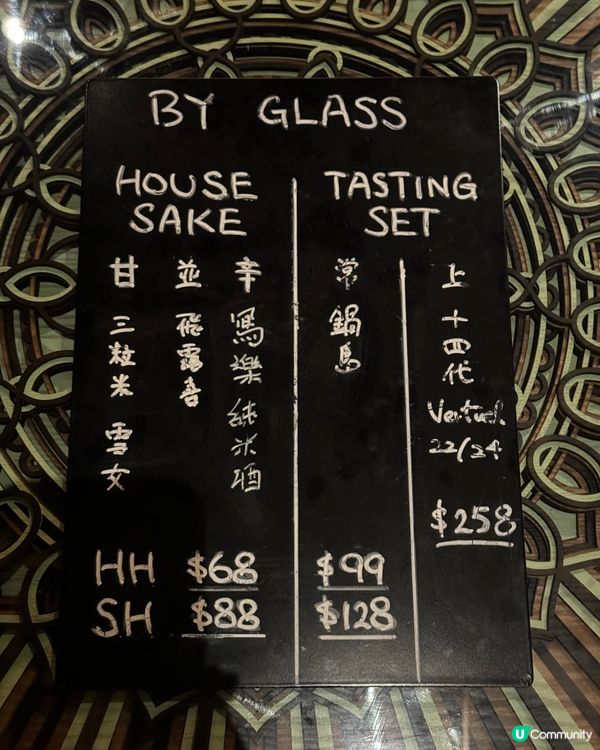 BY GLASS
HOUSE
SAKE
甘
三粒米
雪女
並
飛露喜
辛
寫樂
純米酒
HH $68
SH $88
TASTING
SET
常
鍋島
$99
$128
上
十四代
22/24
$258
U Community